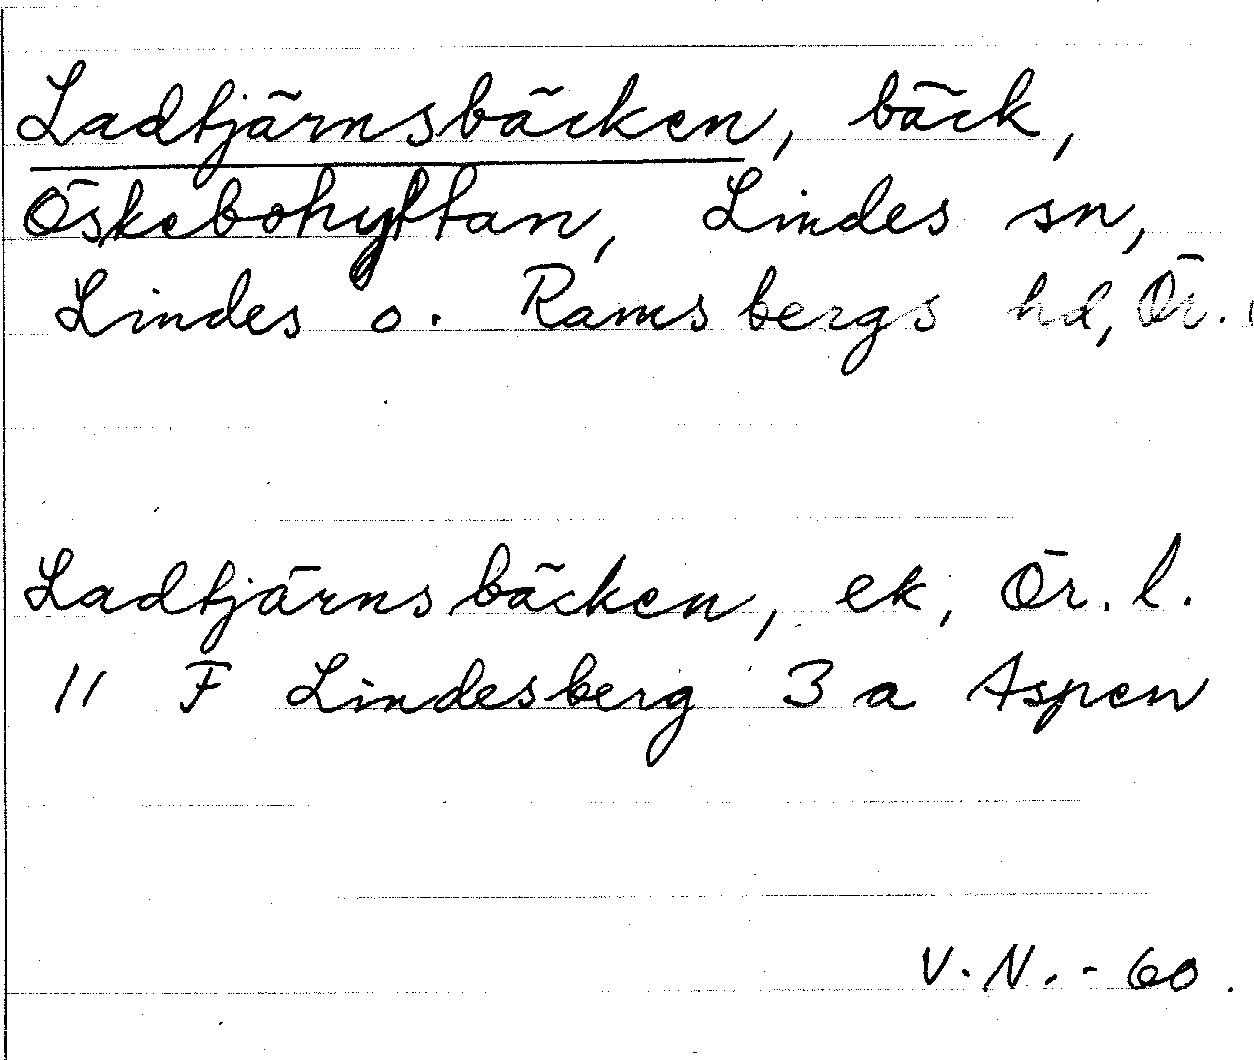 Ladtjärnsbäcken, bäck,
Öskebohyttan, Lindes sn,
Lindes o. Ramsbergs hd, Ör.
Ladtjärnsbäcken, ek, Ör. l.
11 F Lindesberg 3 a Aspen
V. N. - 60.